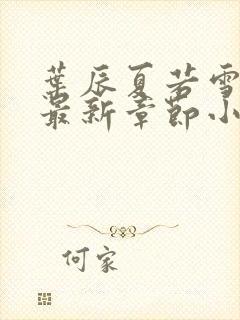 葉辰夏若雪
最新章節小
何家